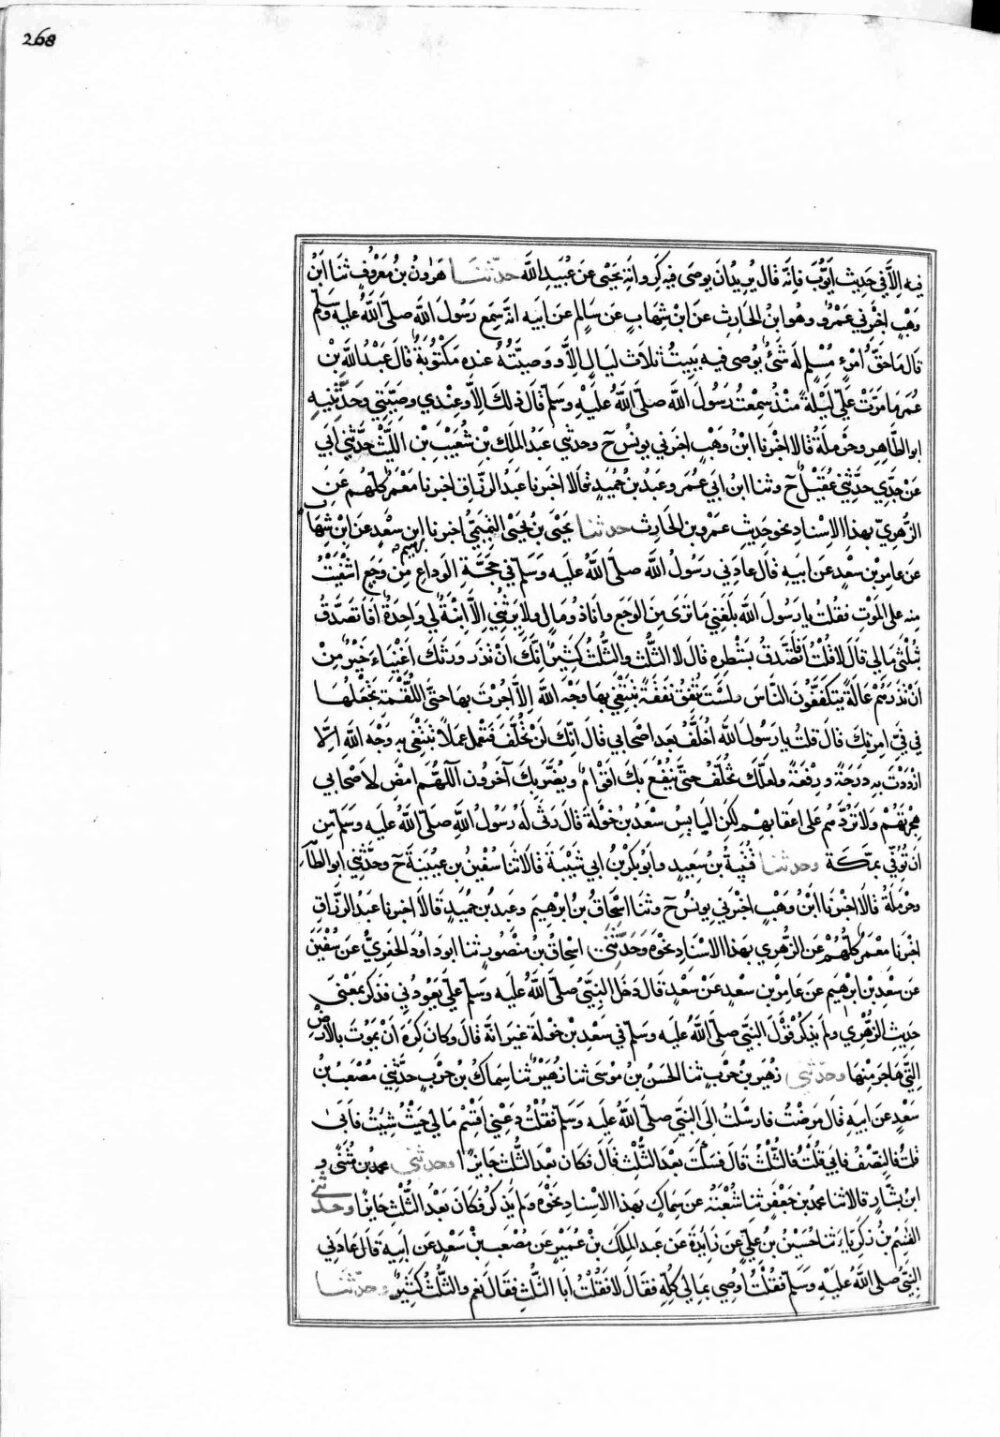 268
فيه إلا في حديث أيوب فإنه قال يريد أن يوصى فيه كرواية يحيى عن عبيد الله حدثنا هرون بن معروف ثنا ابن
وهب اخبرني عمرو وهو ابن الحارث عن ابن شهاب عن سالم عن ابيه انه سمع رسول الله صلى الله عليه وسلم
قال ما حق امرئ مسلم له شئ يوصى فيه يبيت ثلاث ليال إلا ووصيته عنده مكتوبة قال عبد الله بن
عمر ما مرت علي ليلة منذ سمعت رسول الله صلى الله عليه وسلم قال ذلك إلا وعندي وصيتي وحدثنيه
ابو الطاهر وحرملة قالا اخبرنا ابن وهب اخبرني يونس ح وحدثني عبد الملك بن شعيب بن الليث حدثني ابي
عن جدي حدثني عقيل ح وثنا ابن ابي عمر وعبد بن حميد قالا اخبرنا عبد الرزاق اخبرنا معمر كلهم عن
الزهري بهذا الاسناد نحو حديث عمرو بن الحارث حدثنا يحيى بن يحيى التميمي اخبرنا ابرهيم بن سعد عن ابن شهاب
عن عامر بن سعد عن ابيه قال عادني رسول الله صلى الله عليه وسلم في حجة الوداع من وجع اشفيت
منه على الموت فقلت يا رسول الله بلغني ما ترى من الوجع وانا ذو مال ولا يرثني إلا ابنة لي واحدة افاتصدق
بثلثي مالي قال لا قلت أفاتصدق بشطره قال لا الثلث والثلث كثير إنك ان تذر ورثتك اغنياء خير من
ان تذرهم عالة يتكففون الناس ولست تنفق نفقة تبتغي بها وجه الله إلا اجرت بها حتى اللقمة تجعلها
في في امرتك قال قلت يا رسول الله اخلف بعد اصحابي قال انك لن تخلف فتعمل عملا تبتغى به وجه الله إلا
ازددت به درجة ورفعة ولعلك تخلف حتى ينفع بك اقوام ويضر بك آخرون اللهم امض لاصحابي
هجرتهم ولا تردهم على اعقابهم لكن البايس سعد بن خولة قال رثى له رسول الله صلى الله عليه وسلم من
ان توفي بمكة وحدثنا قتيبة بن سعيد وابو بكر بن ابي شيبة قالا ثنا سفين بن عيينة ح وحدثني ابو الطاهر
وحرملة قالا اخبرنا ابن وهب اخبرني يونس ح وثنا اسحاق بن ابرهيم وعبد بن حميد قالا اخبرنا عبد الرزاق
اخبرنا معمر كلهم عن الزهري بهذا الاسناد نحوه وحدثني اسحاق بن منصور ثنا ابو داود الحفري عن سفين
عن سعد بن ابرهيم عن عامر بن سعد عن سعد قال دخل النبي صلى الله عليه وسلم علي يعودني فذكر بمعنى
حديث الزهري ولم يذكر قول النبي صلى الله عليه وسلم في سعد بن خولة غير انه قال وكان يكره ان يموت بالارض
التي هاجر منها وحدثني زهير بن حرب ثنا الحسن بن موسى ثنا زهير ثنا سماك بن حرب حدثني مصعب بن
سعد عن ابيه قال مرضت فارسلت الى النبي صلى الله عليه وسلم فقلت دعني اقسم مالي حيث شيت فابى
قلت فالنصف فابى قلت فالثلث قال فسكت بعد الثلث قال فكان بعد الثلث جايزا وحدثني محمد بن مثنى و
ابن بشار قالا ثنا محمد بن جعفر ثنا شعبة عن سماك بهذا الاسناد نحوه ولم يذكر فكان بعد الثلث جايزا وحدثني
القسم بن زكرياء ثنا حسين بن علي عن زايدة عن عبد الملك بن عمير عن مصعب بن سعد عن ابيه قال عادني
النبي صلى الله عليه وسلم فقلت أوصي بمالي كله فقال لا فقلت ابا الثلث فقال نعم والثلث كثير وحدثنا